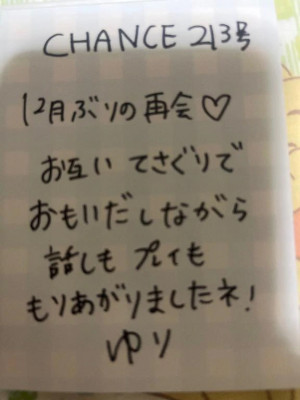 CHANCE 213号
12月ぶりの再会♡
お互い てさぐりで
おもいだしながら
話しも プレイも
もりあがりましたネ!
ゆり